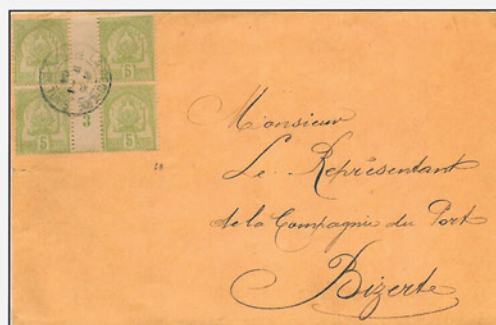 5 5
5 3 5
Monsieur
Le Représentant
de la Compagnie du Port
Bizerte